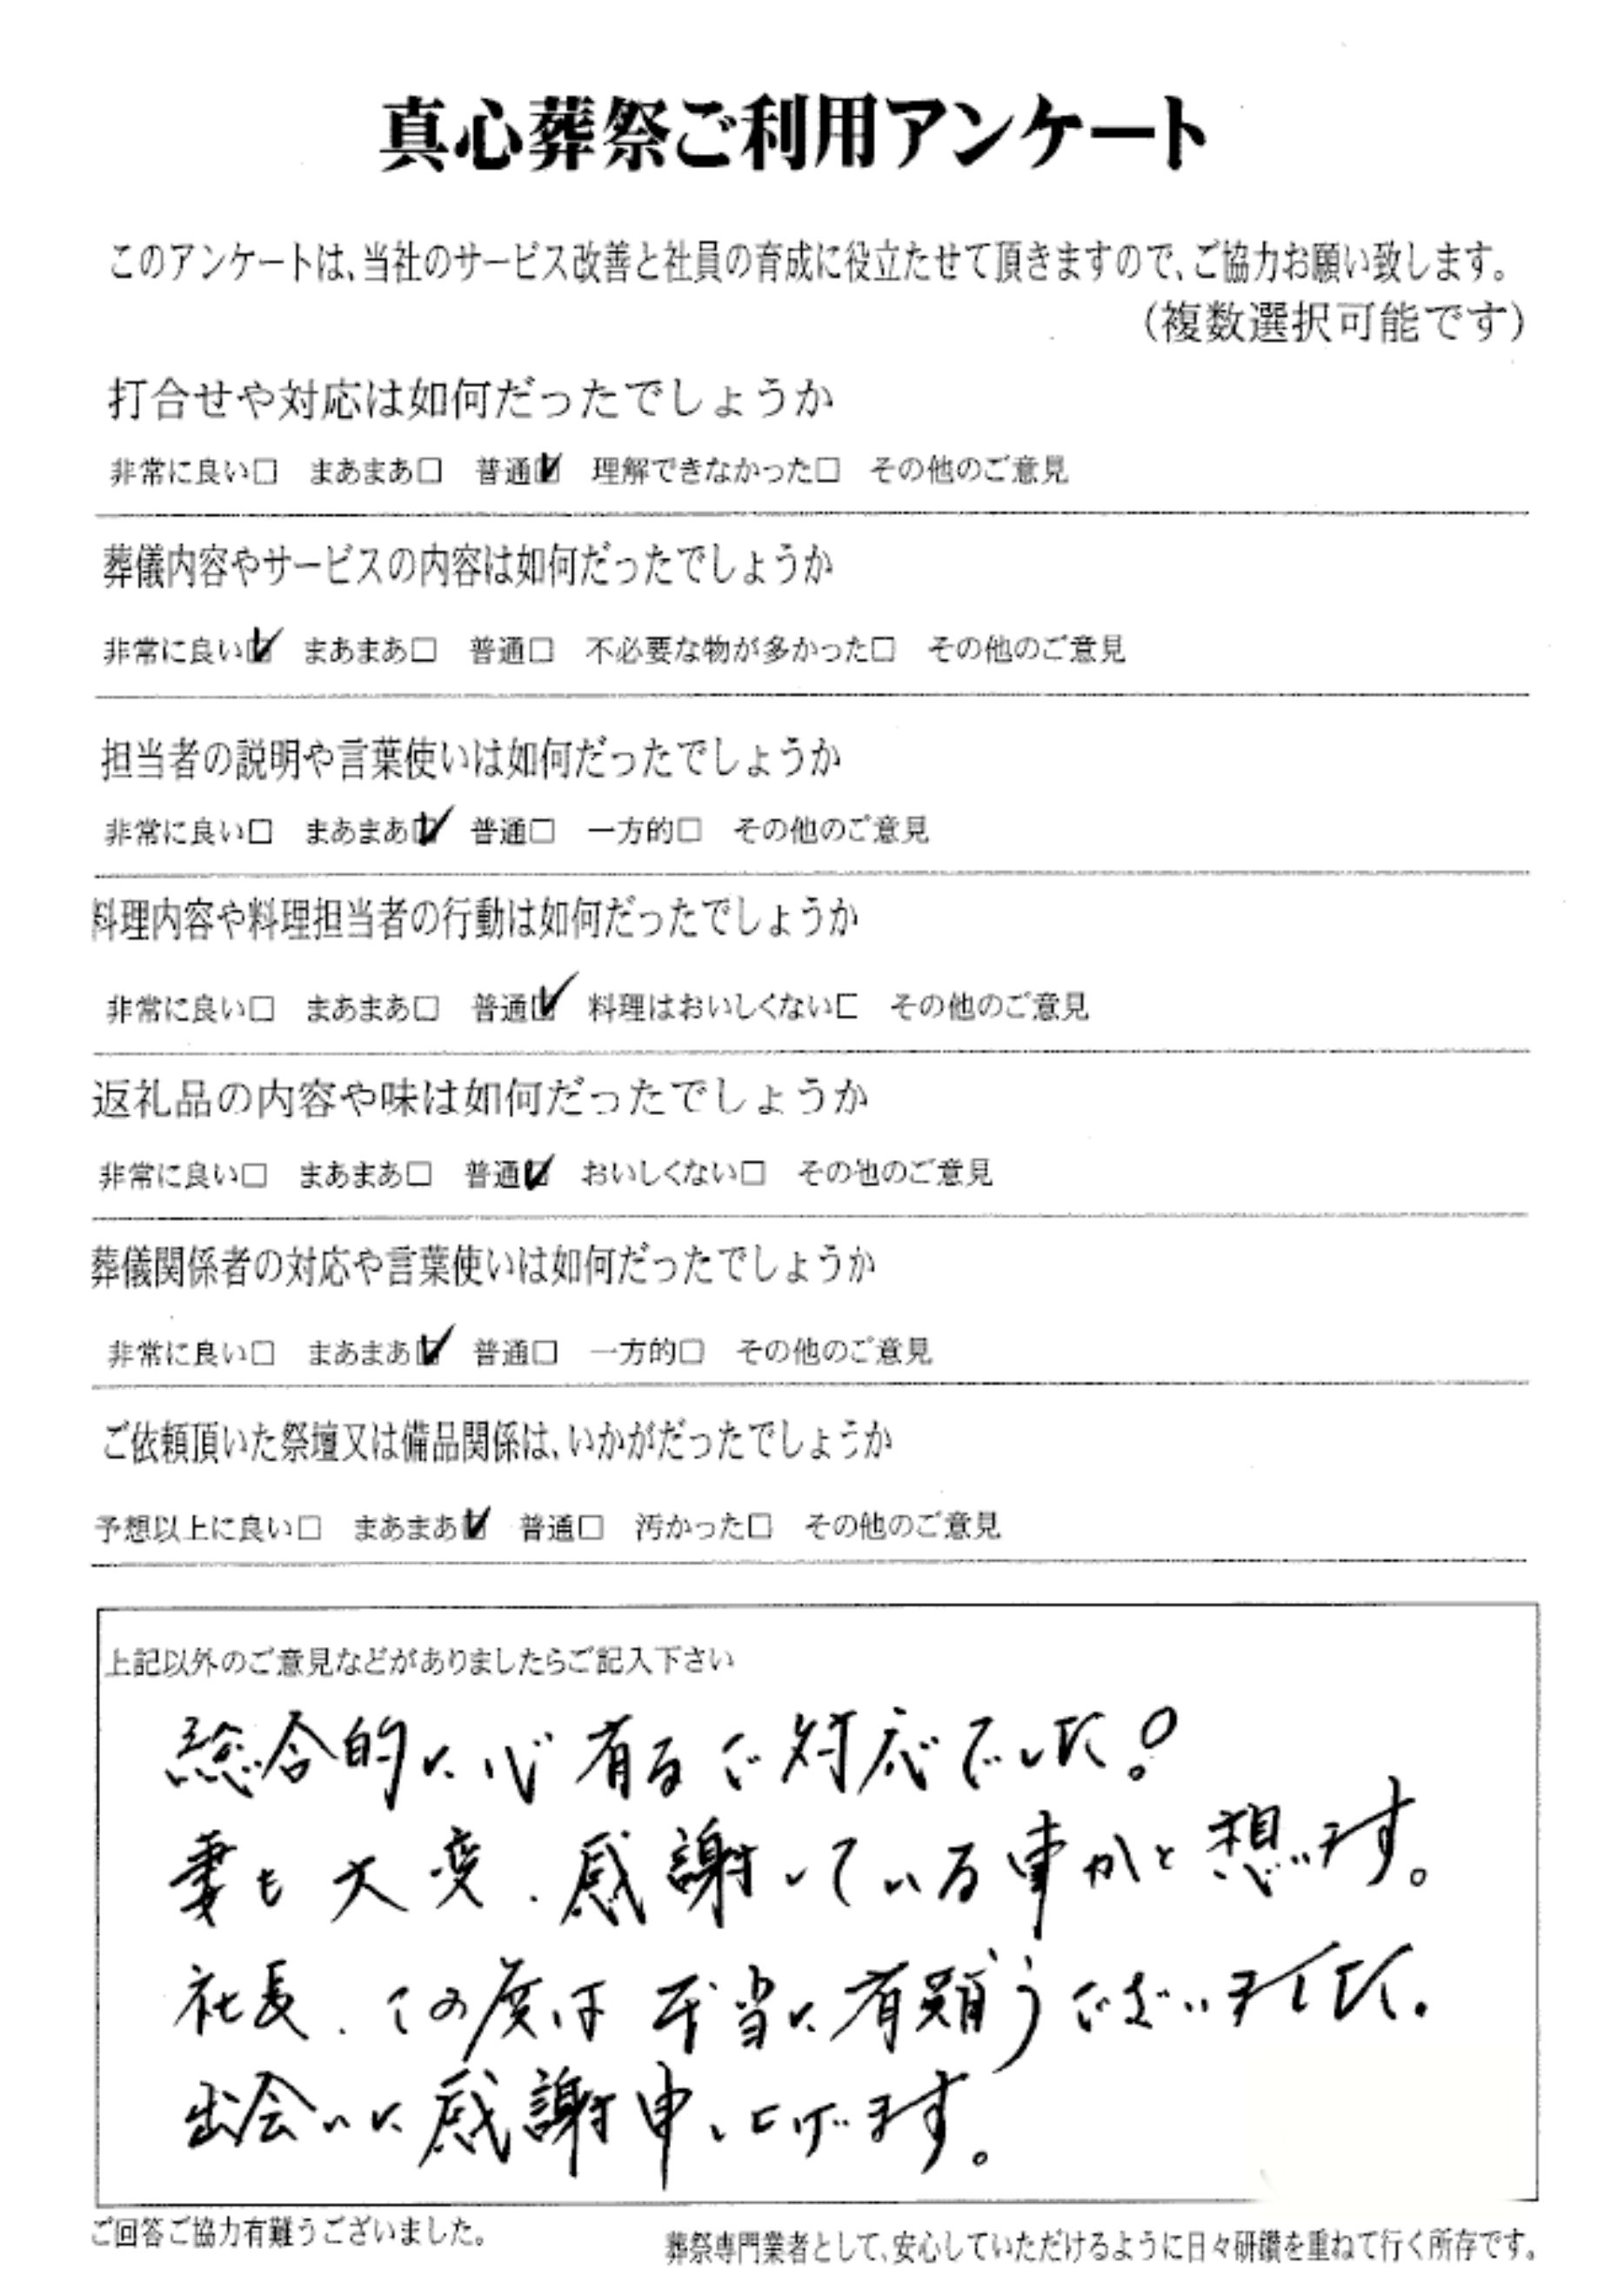 真心葬祭ご利用アンケート
このアンケートは、当社のサービス改善と社員の育成に役立たせて頂きますので、ご協力お願い致します。
（複数選択可能です）
打合せや対応は如何だったでしょうか
非常に良い□ まあまあ□ 普通☑ 理解できなかった□ その他のご意見
葬儀内容やサービスの内容は如何だったでしょうか
非常に良い☑ まあまあ□ 普通□ 不必要な物が多かった□ その他のご意見
担当者の説明や言葉使いは如何だったでしょうか
非常に良い□ まあまあ☑ 普通□ 一方的□ その他のご意見
料理内容や料理担当者の行動は如何だったでしょうか
非常に良い□ まあまあ□ 普通☑ 料理はおいしくない□ その他のご意見
返礼品の内容や味は如何だったでしょうか
非常に良い□ まあまあ□ 普通☑ おいしくない□ その他のご意見
葬儀関係者の対応や言葉使いは如何だったでしょうか
非常に良い□ まあまあ☑ 普通□ 一方的□ その他のご意見
ご依頼頂いた祭壇又は備品関係は、いかがだったでしょうか
予想以上に良い□ まあまあ☑ 普通□ 汚かった□ その他のご意見
上記以外のご意見などがありましたらご記入下さい
総合的に心有るご対応でした！
妻も大変、感謝している事かと想います。
社長、この度は本当に有難うございました。
出会いに感謝申し上げます。
ご回答ご協力有難うございました。
葬祭専門業者として、安心していただけるように日々研鑽を重ねて行く所存です。